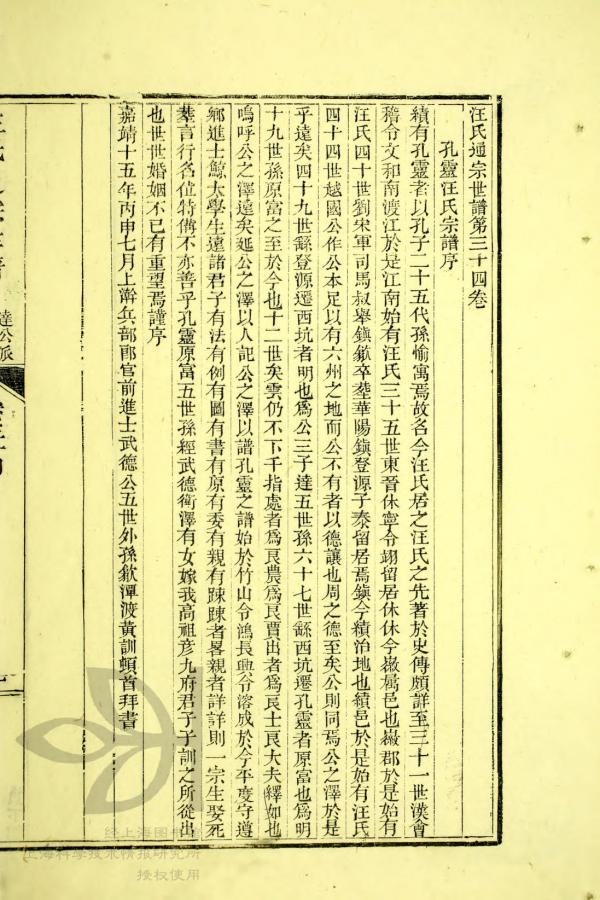 汪氏通宗世譜第三十四卷
孔靈汪氏宗譜序
績有孔靈者以孔子二十五代孫愉寓焉故名今汪氏居之汪氏之先著於史傳頗詳至三十一世漢會
稽令文和南渡江於是江南始有汪氏三十五世東晉休寧令翊留居休休今徽屬邑也徽郡於是始有
汪氏四十世劉宋軍司馬叔舉鎮歙卒塟華陽鎮登源子泰留居焉鎮今績治地也績邑於是始有汪氏
四十四世越國公作公本足以有六州之地而公不有者以德讓也周之德至矣公則同焉公之澤於是
乎遠矣四十九世繇登源遷西坑者明也爲公三子達五世孫六十七世繇西坑遷孔靈者原富也爲明
十九世孫原富之至於今也十二世矣雲仍不下千指處者爲良農爲良賈出者爲良士良大夫繹如也
嗚呼公之澤遠矣延公之澤以人記公之澤以譜孔靈之譜始於竹山令鴻長興令溶成於今平度守遵
鄉進士鯨太學生遠諸君子有法有例有圖有書有原有委有親有踈踈者畧親者詳詳則一宗生娶死
塟言行名位特傳不亦善乎孔靈原富五世孫經武德衛澤有女嫁我高祖彥九府君子子訓之所從出
也世世婚姻不已有重望焉謹序
嘉靖十五年丙申七月上澣兵部郎官前進士武德公五世外孫歙潭渡黃訓頓首拜書
達公派
经上海图书馆
上海科学技术情报研究所
授权使用